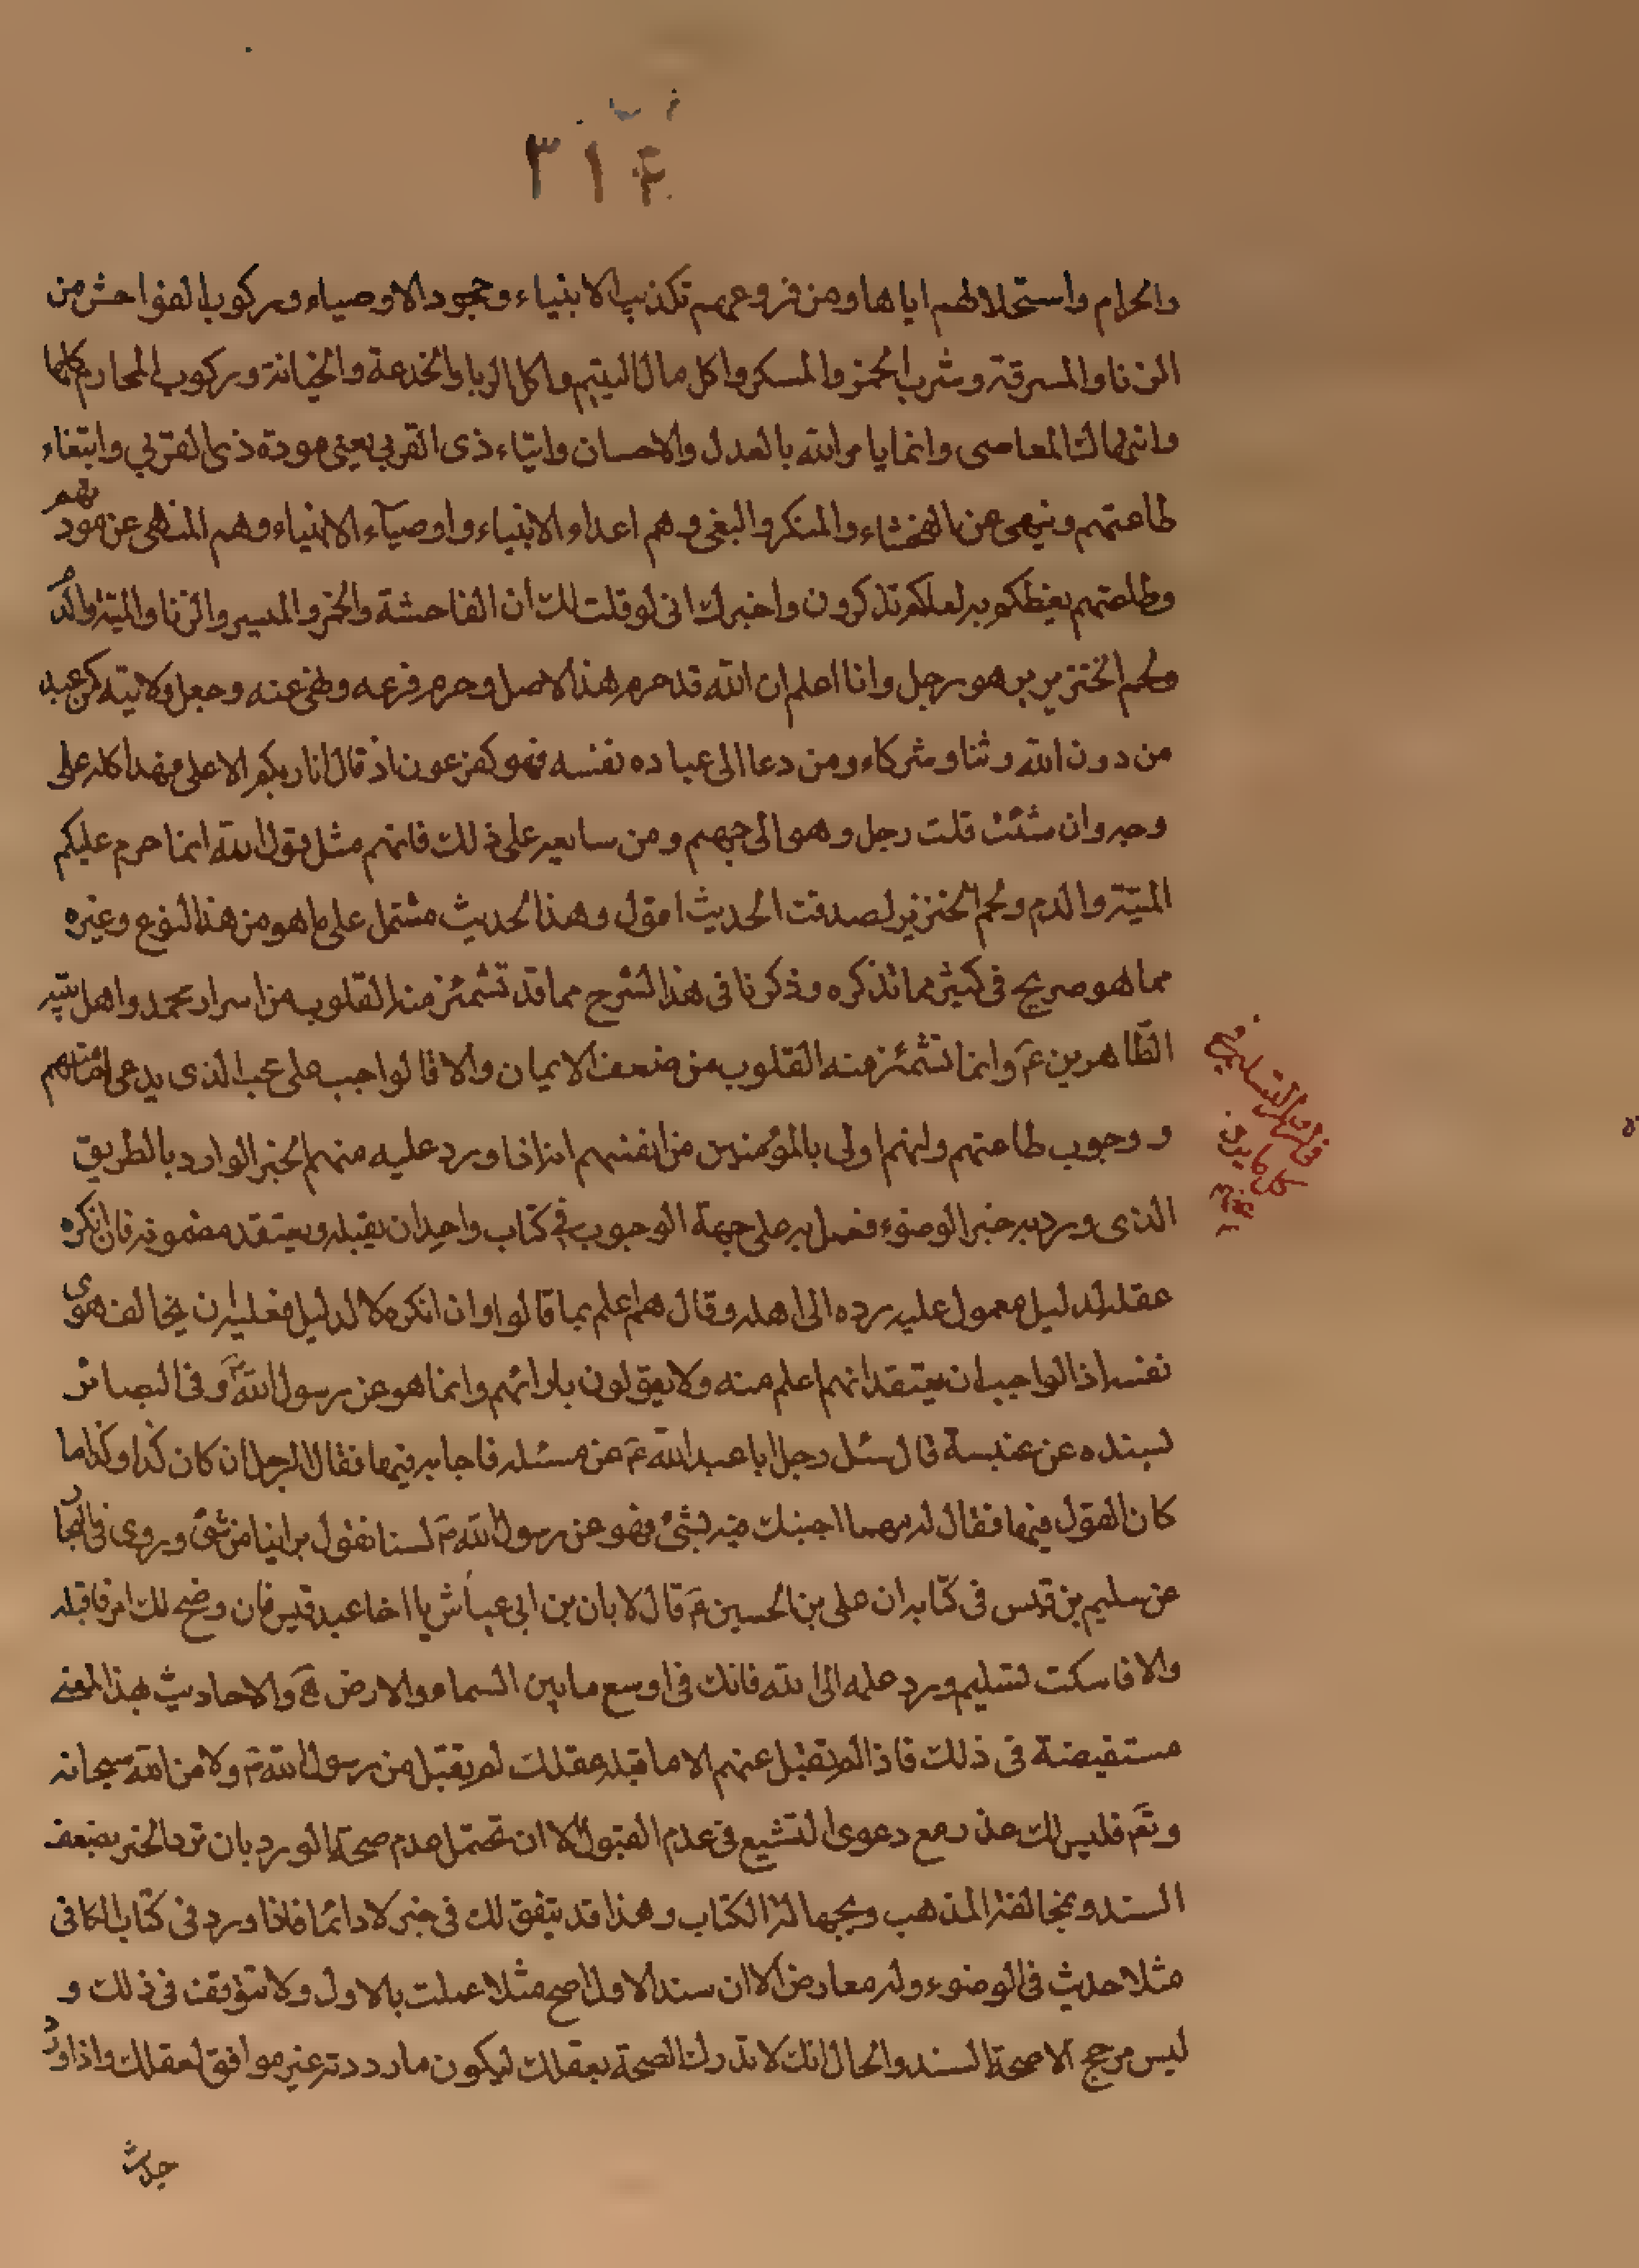 ٣١٤
والحرام واستحلالهم اياها ومن فروعهم تكذيب الانبياء وجحود الاوصياء وركوب الفواحش من
الزنا والسرقة وشرب الخمر والمسكر واكل مال اليتيم واكل الربا والخدعة والخيانة وركوب المحارم كلها
وانتهاك المعاصى وانما يامر الله بالعدل والاحسان وايتاء ذى القربى يعنى مودة ذى القربى وابتغاء
طاعتهم وينهى عن الفحشاء والمنكر والبغى وهم اعداء الانبياء واوصيآء الانبياء وهم المنهى عن مودتهم
وطاعتهم يعظكم به لعلكم تذكرون واخبرك انى لو قلت لك ان الفاحشة والخمر والميسر والزنا والميتة والدم
ولحم الخنزير هو رجل وانا اعلم ان الله قد حرم هذا الاصل وحرم فرعه ونهى عنه وجعل ولايته كمن عبد
من دون الله وثنا وشركاء ومن دعا الى عباده نفسه فهو كفرعون اذ قال انا ربكم الاعلى فهذا كله على
وجه وان شئت قلت رجل وهو الى جهنم ومن سايعه على ذلك فانهم مثل قول الله انما حرم عليكم
الميتة والدم ولحم الخنزير لصدقت الحديث اقول وهذا الحديث مشتمل على ما هو من هذا النوع وغيره
مما هو صريح فى كثير مما نذكره وذكرنا فى هذا الشرح مما قد تشمئز منه القلوب من اسرار محمد واهل بيته
الطّاهرين ع وانما تشمئز منه القلوب من ضعف الايمان والا فالواجب على محب الذى يدعى امامتهم
و وجوب طاعتهم وانهم اولى بالمؤمنين من انفسهم انه اذا ورد عليه منهم الخبر الوارد بالطريق
الذى ورد به خبر الوضوء فعمل به على جهة الوجوب فى كتاب واحد ان يقبله ويعتقد مضمونه فان انكره
عقله لدليل معمول عليه رده الى اهله وقال هم اعلم بما قالوا وان انكره لا لدليل فعليه ان يخالف هوى
نفسه اذ الواجب ان يعتقد انهم اعلم منه ولا يقولون بارائهم وانما هو عن رسول الله ص وفى البصائر
بسنده عن عنبسة قال سئل رجل ابا عبد الله ع عن مسئله فاجابه فيها فقال الرجل ان كان كذا وكذا ما
كان القول فيها فقال له مهما اجبتك فيه بشئ فهو عن رسول الله ص لسنا نقول براينا من شئ وروى فى البحار
عن سليم بن قيس فى كتابه ان على بن الحسين ع قال لابان بن ابى عياش يا اخا عبد قيس فان وضح لك امر فاقبله
والا فاسكت تسليم ورد علمه الى الله فانك فى اوسع ما بين السماء والارض والاحاديث بهذا المعنى
مستفيضة فى ذلك فاذا لم تقبل عنهم الا ما قبله عقلك لم يقبل من رسول الله ص ولا من الله سبحانه
وتعَ فليس لك عذر مع دعوى التشيع فى عدم القبول الا ان تحتمل عدم صحة الورد بان ترد الخبر بضعف
السند وبمخالفة المذهب وبجهالة الكتاب وهذا قد يتفق لك فى خبر لا دائما فاذا ورد فى كتاب الكافى
مثلا حديث فى الوضوء وله معارض الا ان سند الاول اصح مثلا عملت بالاول ولا تتوقف فى ذلك و
ليس مرجح الا صحة السند والحال انك لا تدرك الصحة بعقلك ليكون ما رددته غير موافق لعقلك واذا ورد
حديث